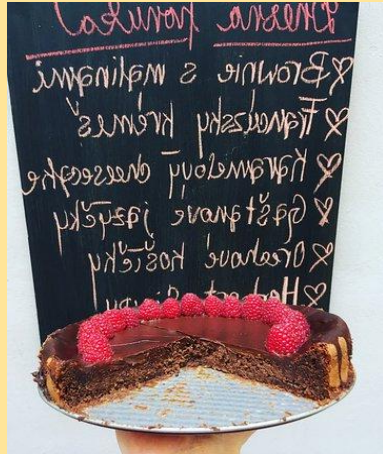 Dnešná ponuka
♡ Brownie s malinami
♡ Francúzsky krémeš
♡ Karamelový cheesecake
♡ Gaštanové jazyčky
♡ Orechové košíčky